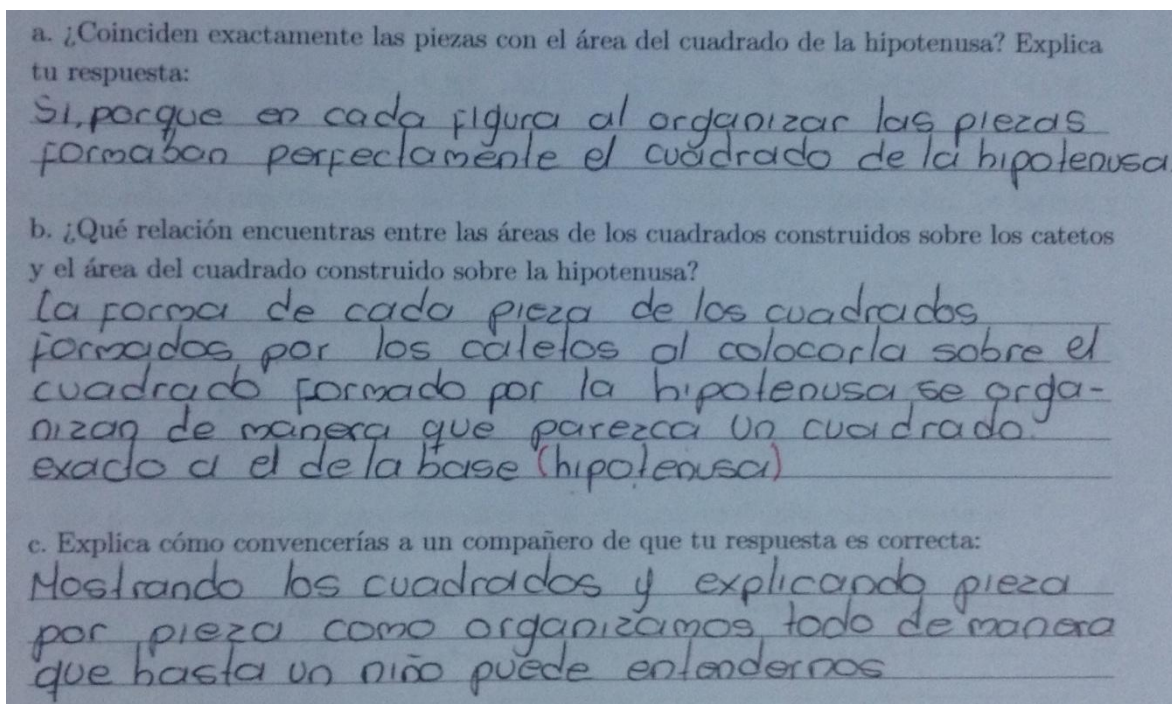 a. ¿Coinciden exactamente las piezas con el área del cuadrado de la hipotenusa? Explica
tu respuesta:
Si, porque en cada figura al organizar las piezas
formaban perfectamente el cuadrado de la hipotenusa
b. ¿Qué relación encuentras entre las áreas de los cuadrados construidos sobre los catetos
y el área del cuadrado construido sobre la hipotenusa?
La forma de cada pieza de los cuadrados
formados por los catetos al colocarla sobre el
cuadrado formado por la hipotenusa se orga-
nizan de manera que parezca un cuadrado
exacto a el de la base (hipotenusa)
c. Explica cómo convencerías a un compañero de que tu respuesta es correcta:
Mostrando los cuadrados y explicando pieza
por pieza como organizamos todo de manera
que hasta un niño puede entendernos